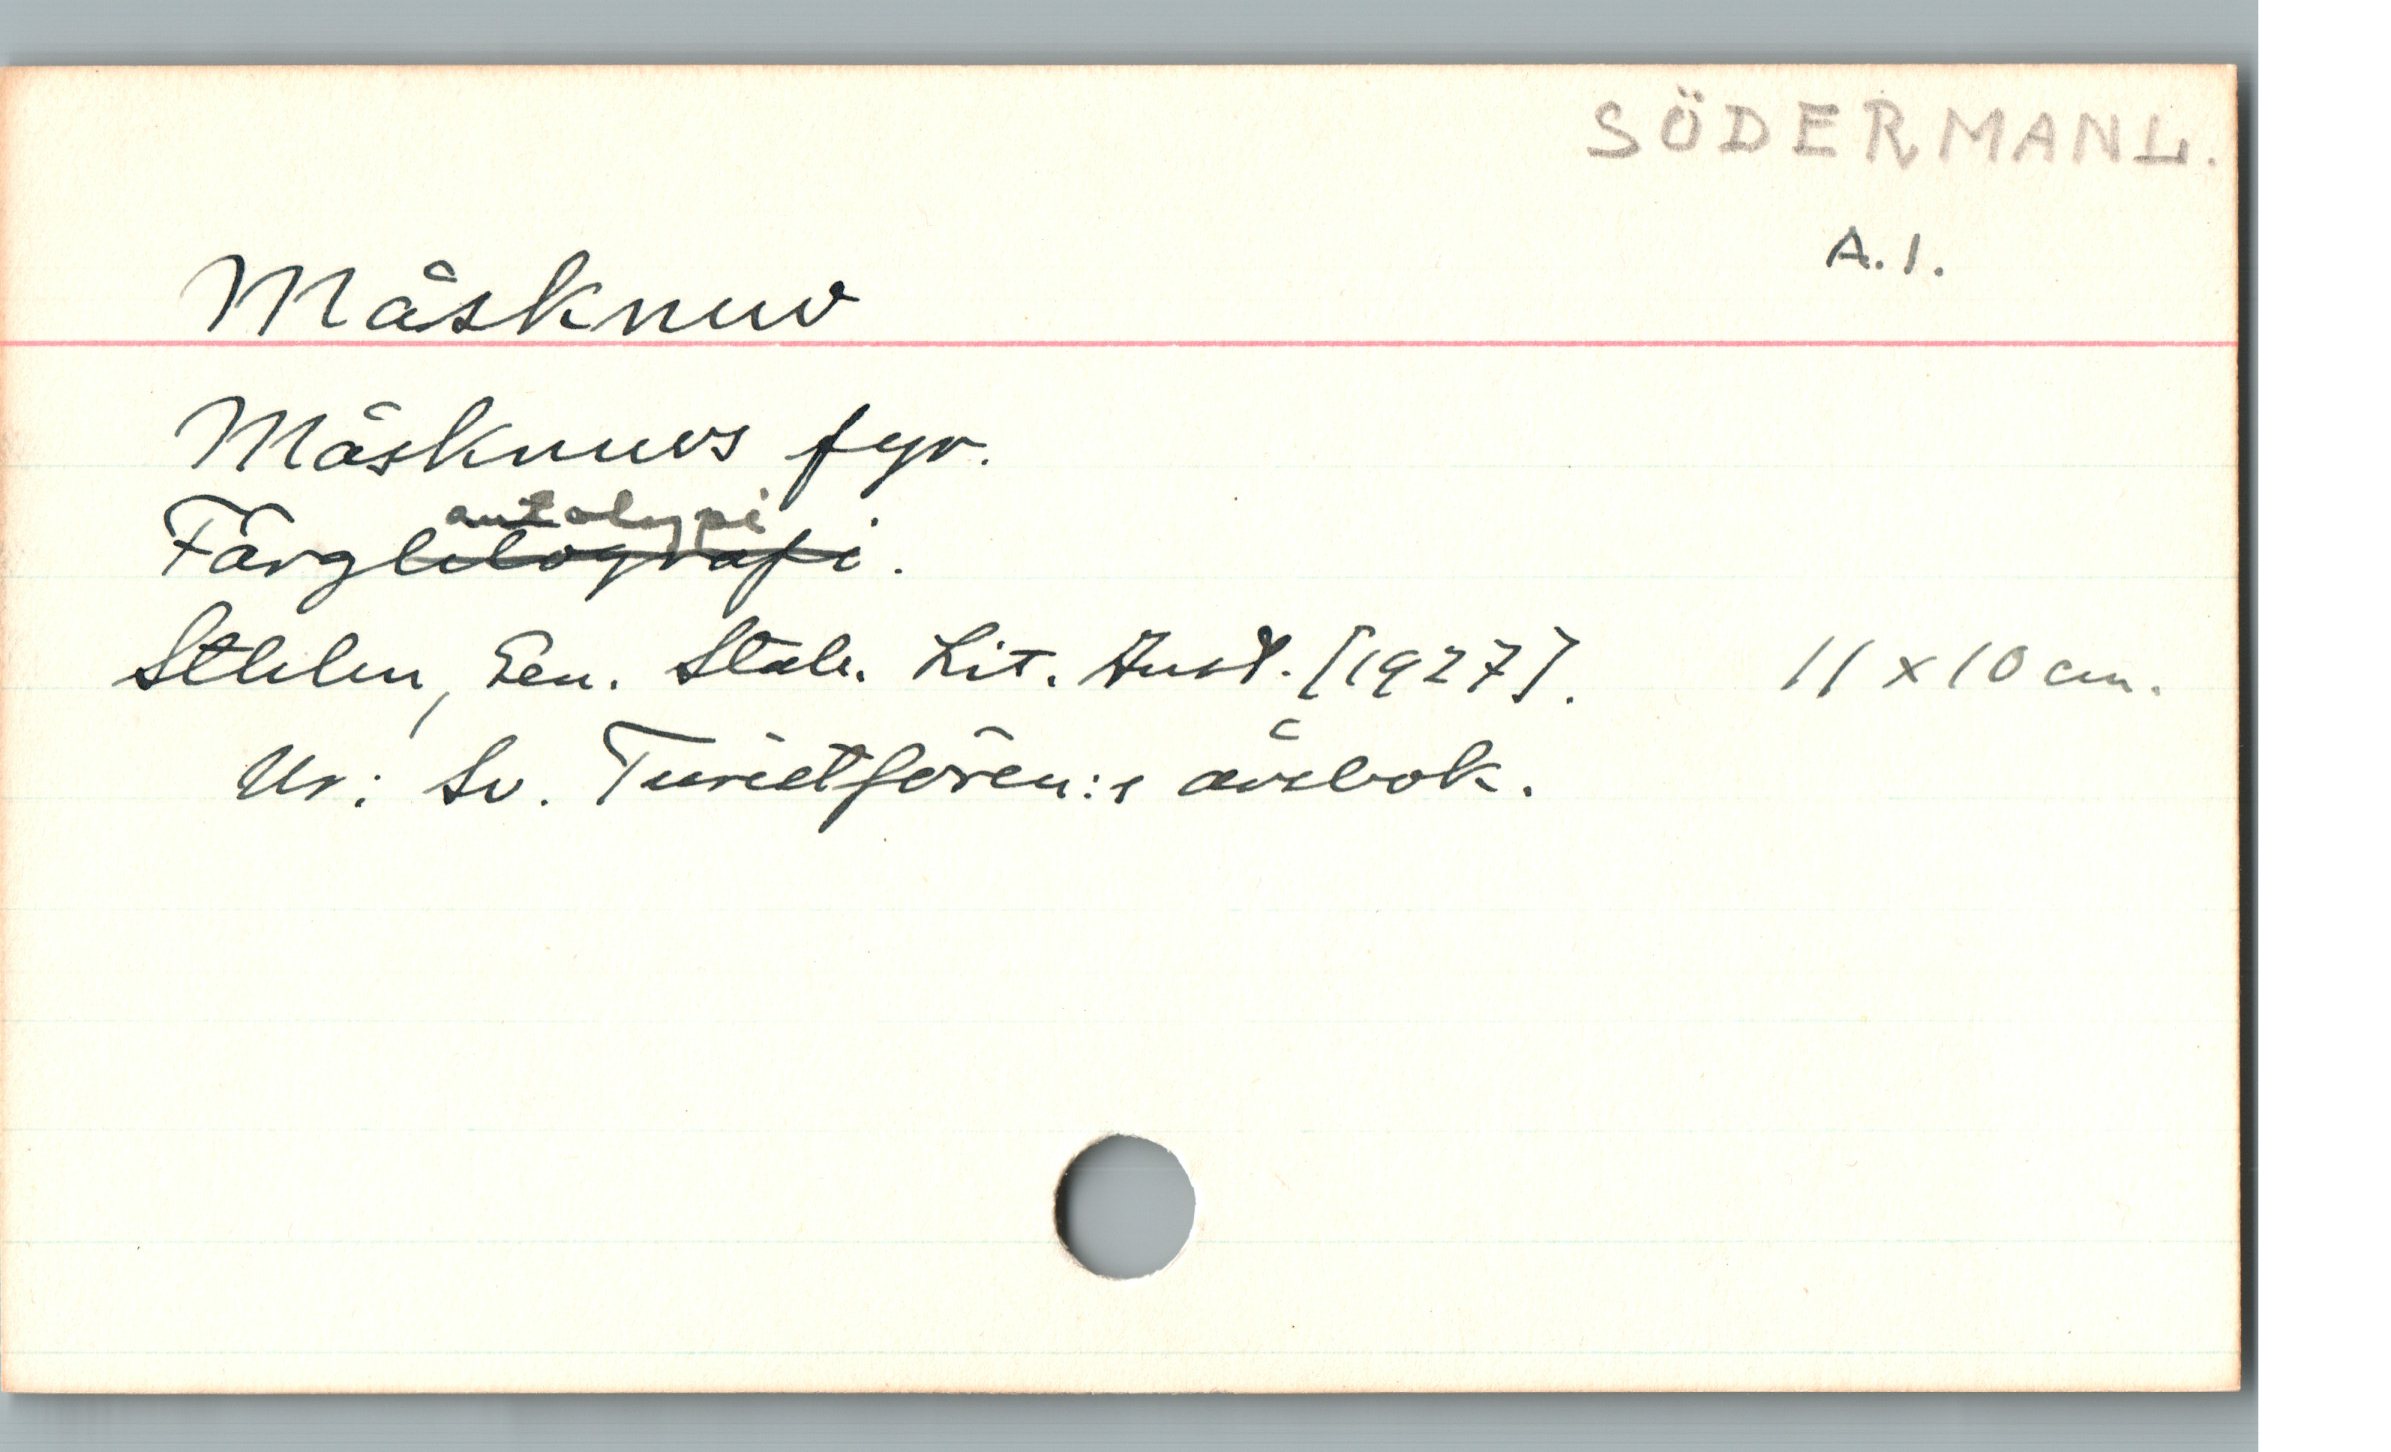 SÖDERMANL.
A.1.
Måsknuv
Måsknuvs fyr.
autotypi
Färglitografi.
Sthlm, Gen. Stab. Lit. Anst. [1927]. 11 x 10 cm.
Ur: Sv. Turistfören:s årsbok.